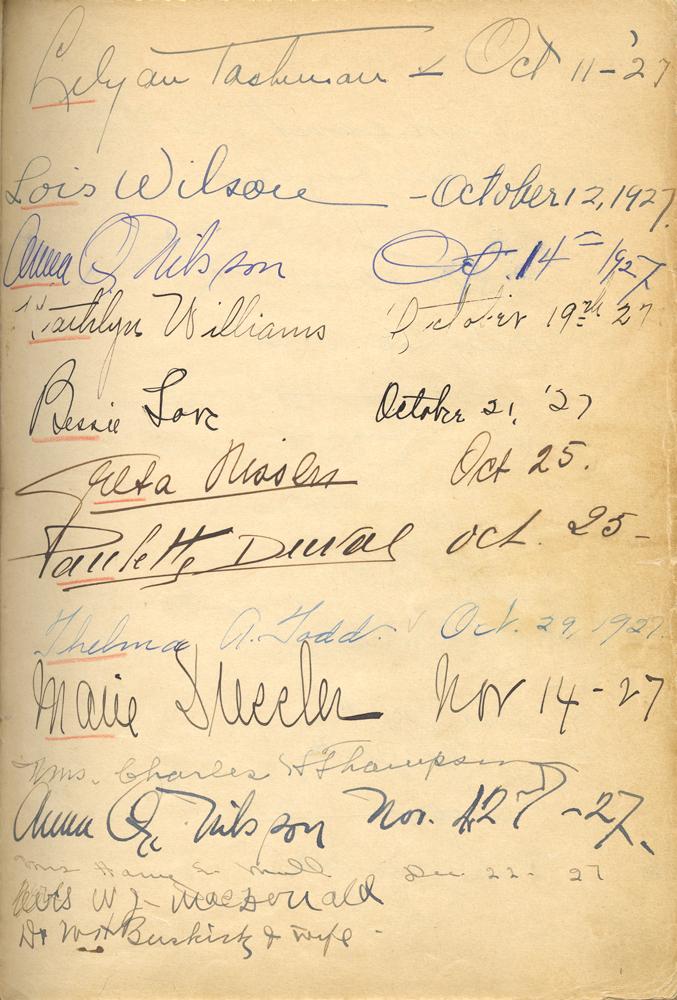 Lilyan Tashman - Oct 11-'27
Lois Wilson - October 12, 1927
Anna Q Nilsson Oct. 14th 1927
Kathlyn Williams October 19th 27
Bessie Love October 21, '27
Greta Nissen Oct 25.
Paulette Duval oct. 25-
Thelma A. Todd. Oct. 29, 1927.
Marie Dressler Nov 14-27
Mrs. Charles H Thompson
Anna Q. Nilsson Nov. -27.
Mrs Dec. 22- 27
W J. MacDonald
Dr W H Buskirk & wife -